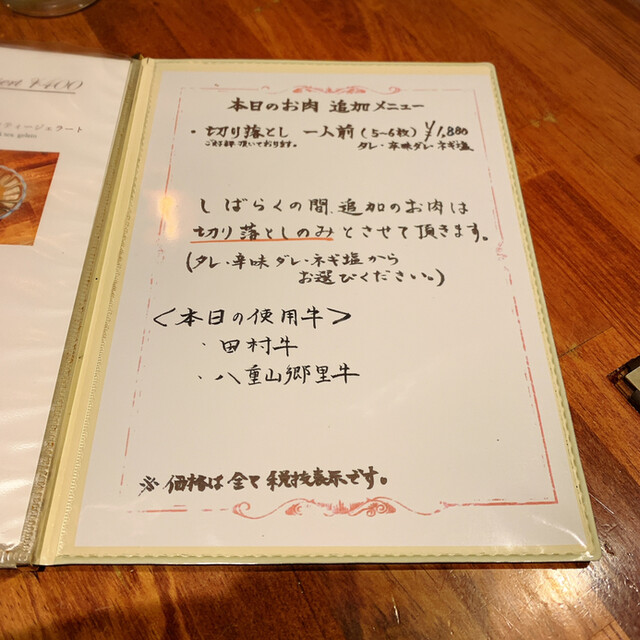 ¥400
ティージェラート
本日のお肉 追加メニュー
・切り落とし 一人前(5~6枚)¥1,880
ご好評頂いております。 タレ・辛味ダレ・ネギ塩
しばらくの間、追加のお肉は
切り落としのみとさせて頂きます。
(タレ・辛味ダレ・ネギ塩から
お選びください。)
<本日の使用牛>
・田村牛
・八重山郷里牛
※価格は全て税抜表示です。